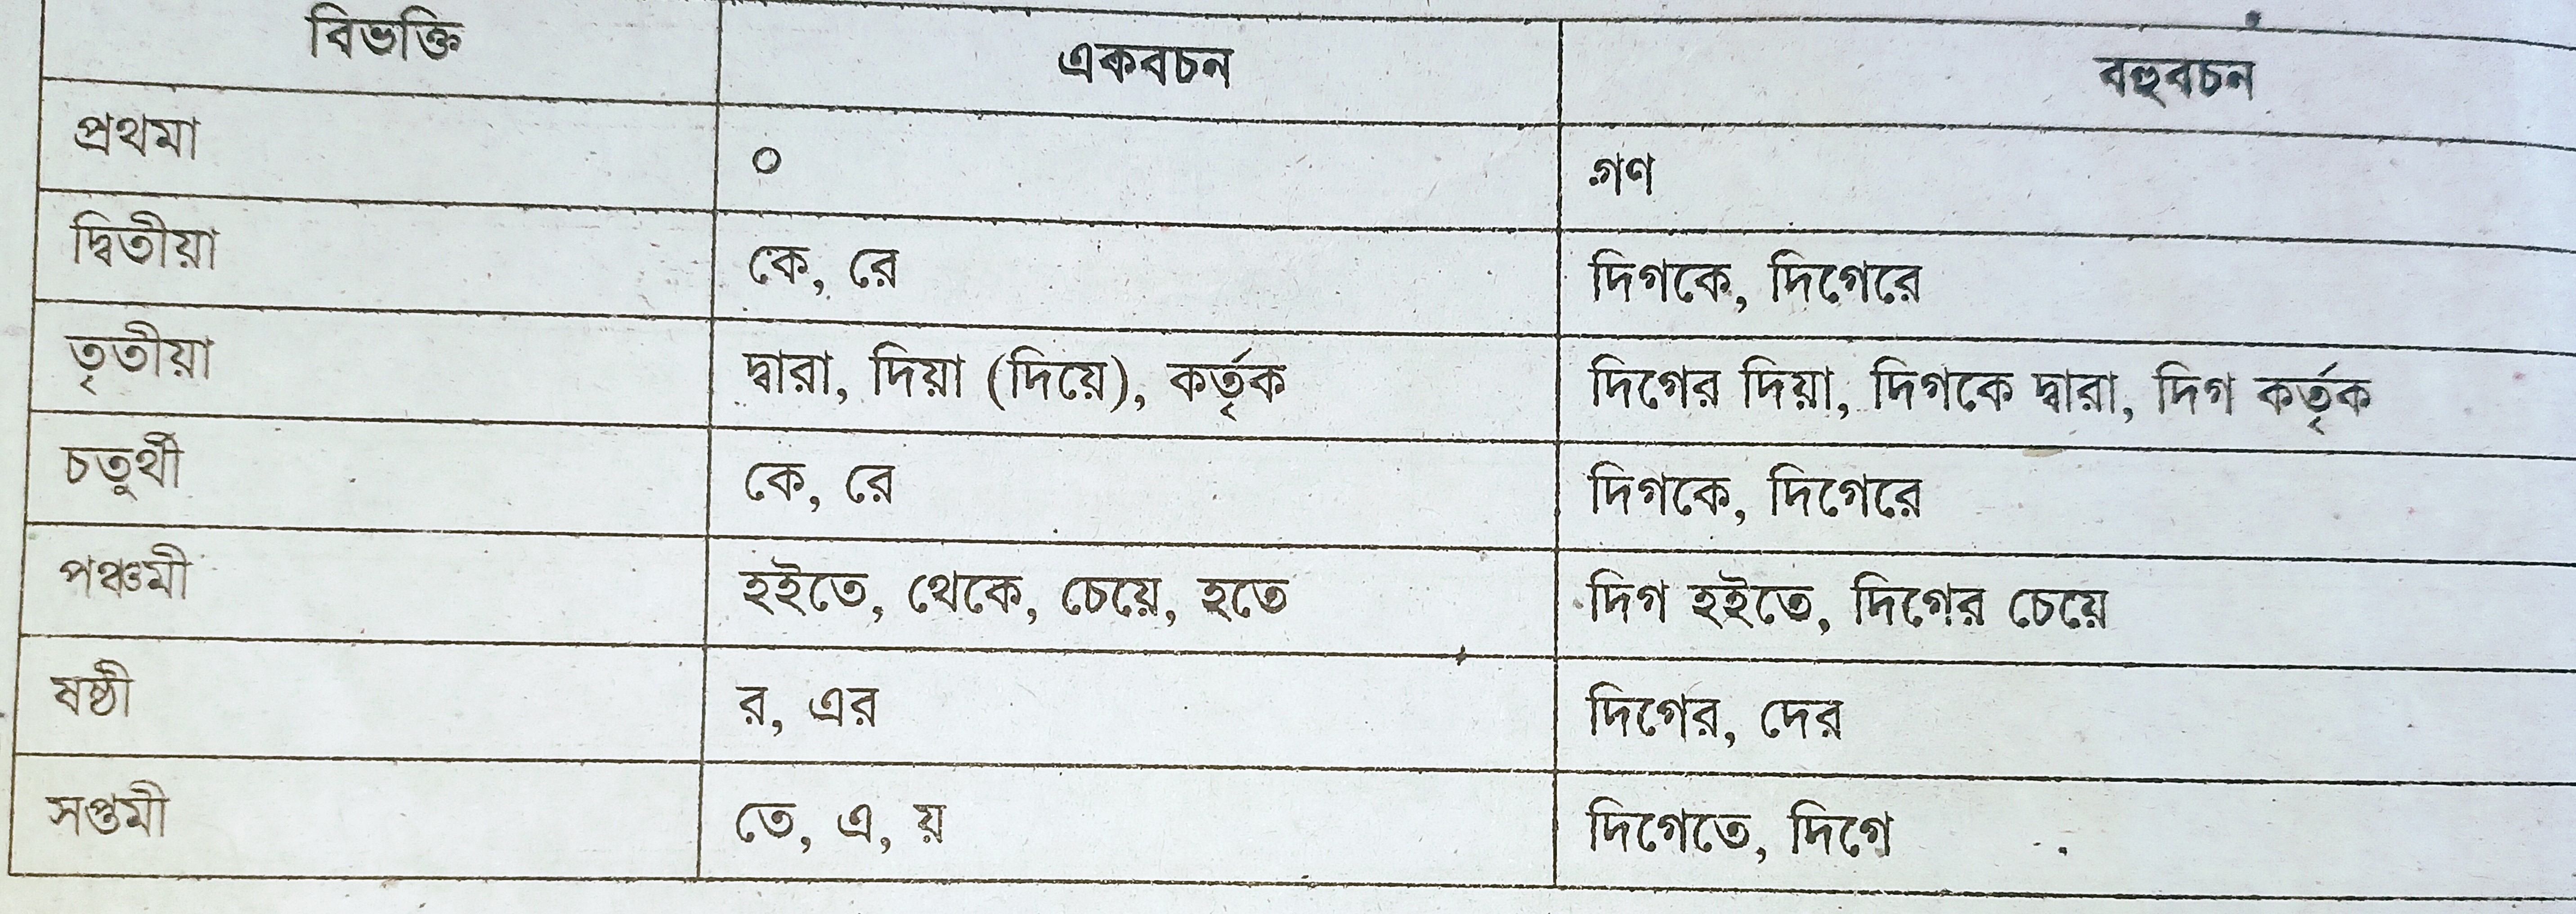 বিভক্তি একবচন বহুবচন
প্রথমা ০ গণ
দ্বিতীয়া কে, রে দিগকে, দিগেরে
তৃতীয়া দ্বারা, দিয়া (দিয়ে), কর্তৃক দিগের দিয়া, দিগকে দ্বারা, দিগ কর্তৃক
চতুর্থী কে, রে দিগকে, দিগেরে
পঞ্চমী হইতে, থেকে, চেয়ে, হতে দিগ হইতে, দিগের চেয়ে
ষষ্ঠী র, এর দিগের, দের
সপ্তমী তে, এ, য় দিগেতে, দিগে